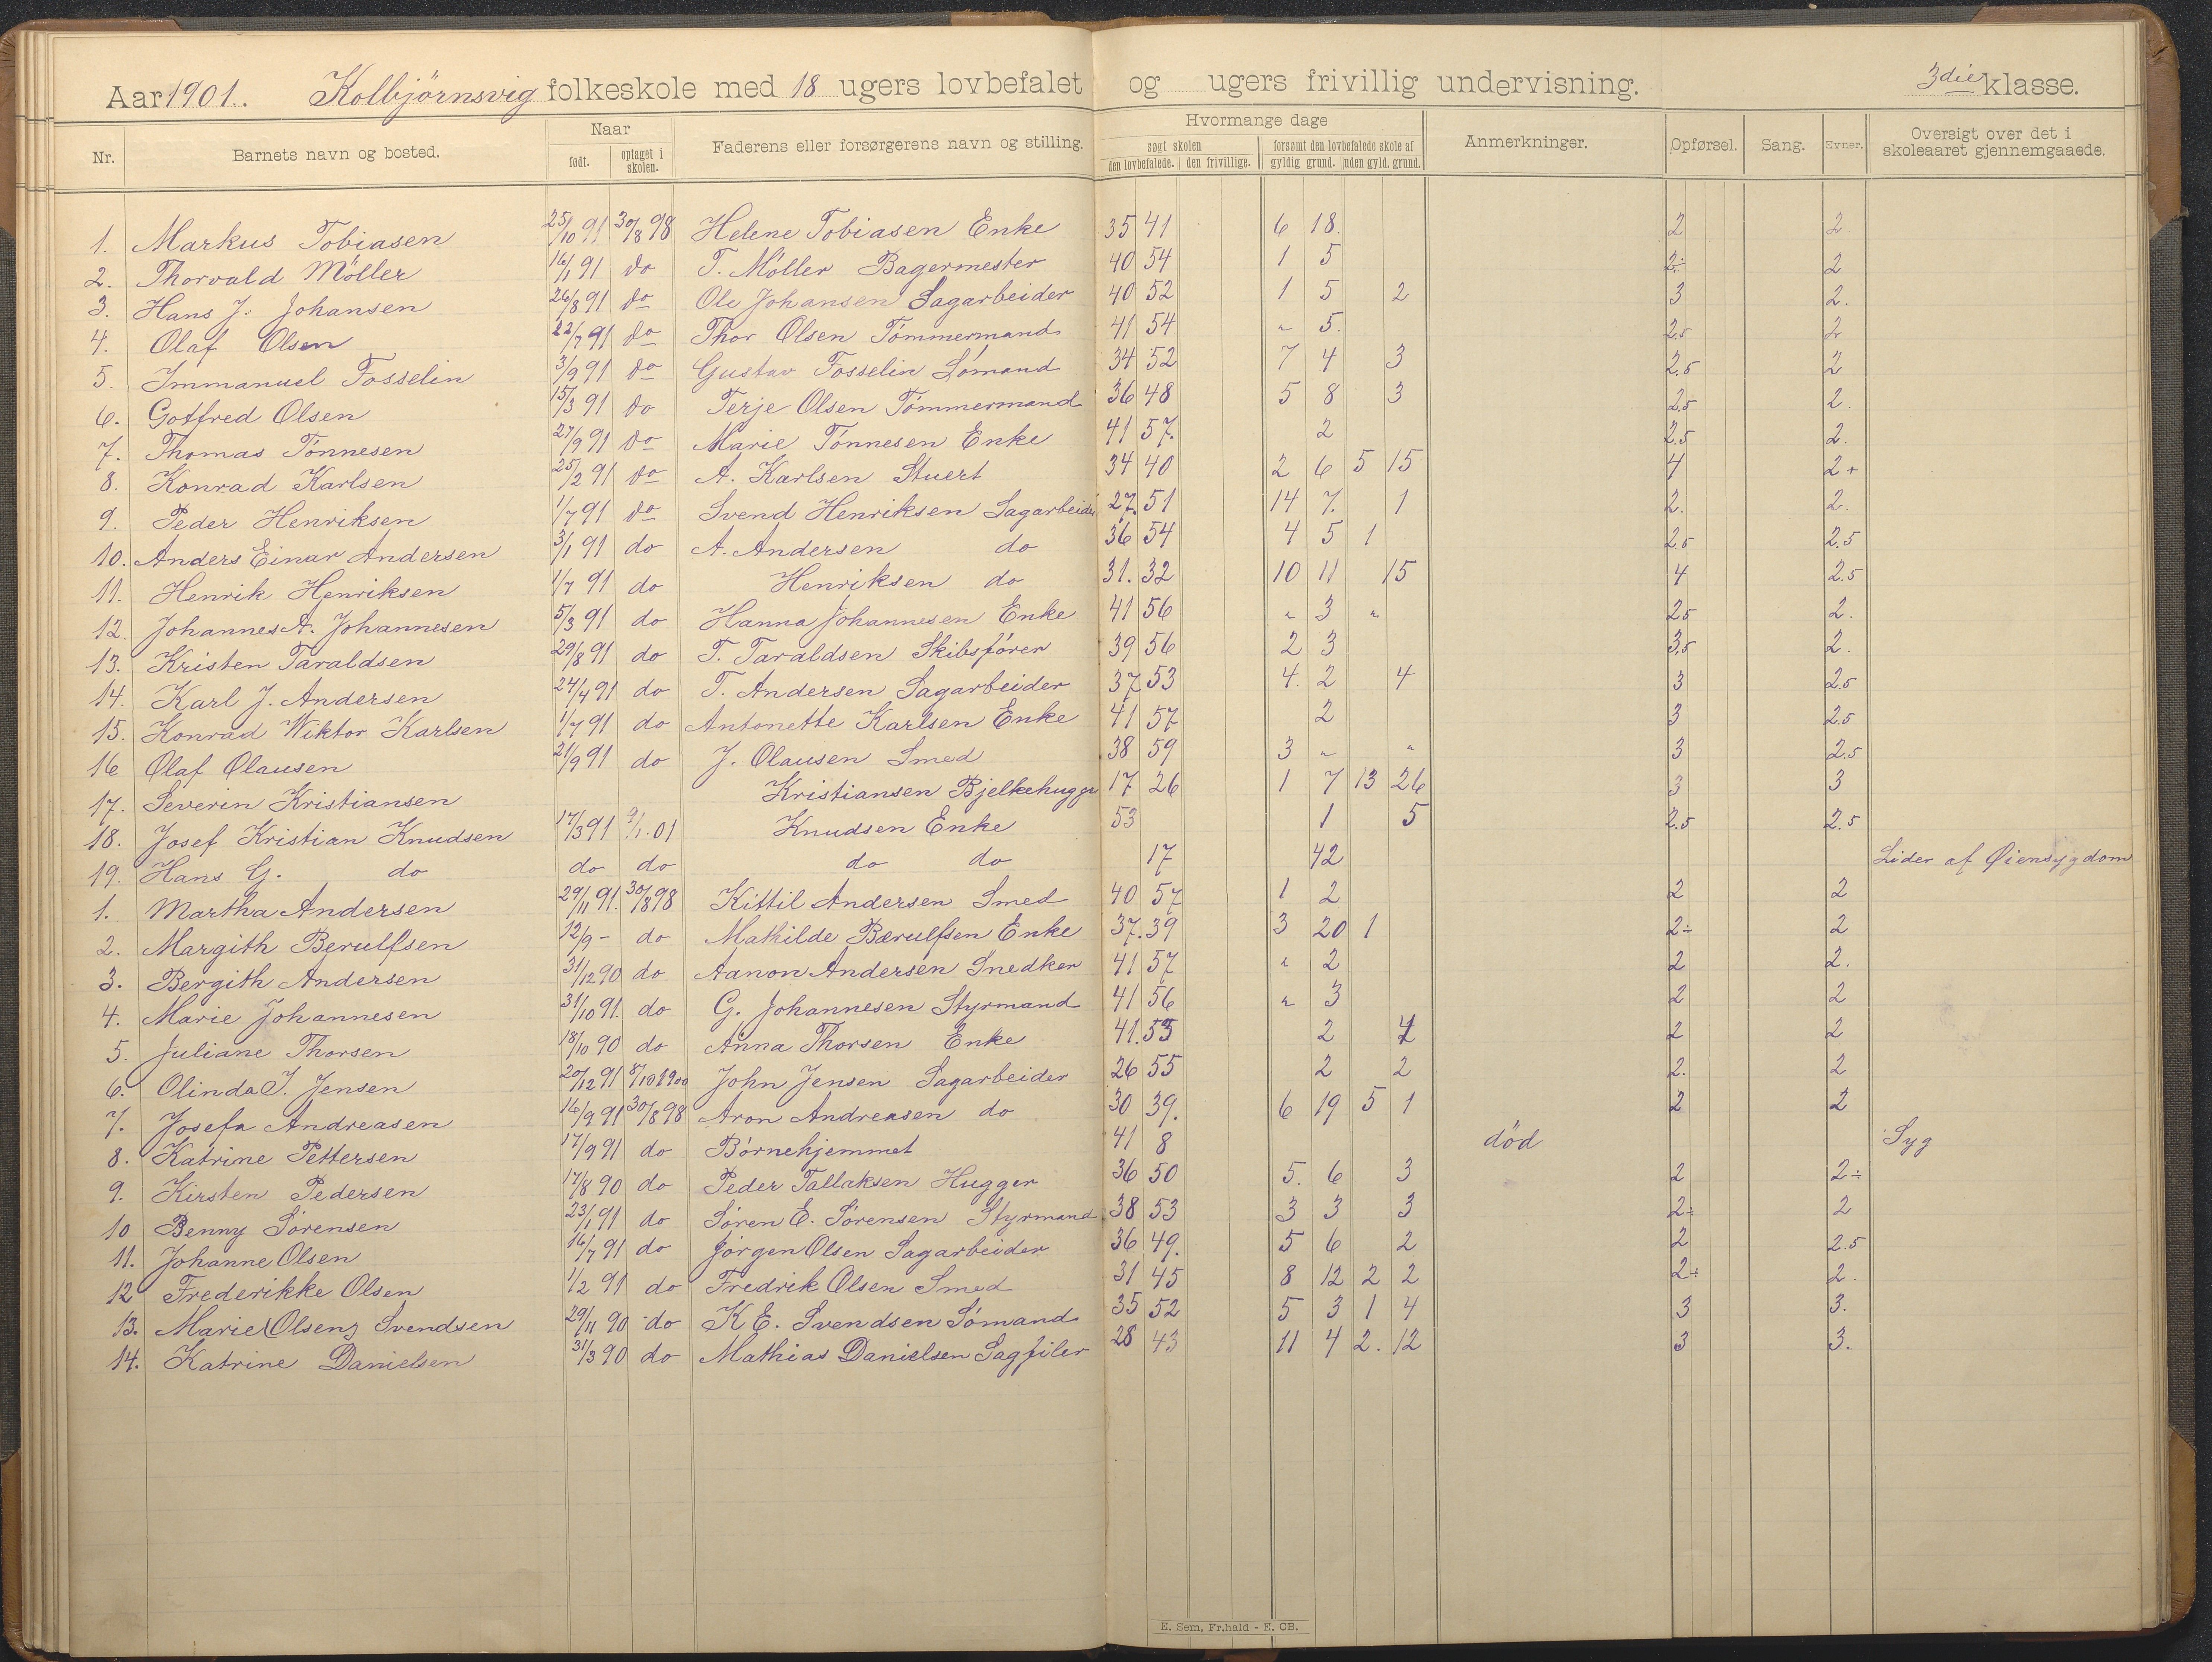 Aar 1901. Kolbjörnsvig folkeskole med 18 ugers lovbefalet og ugers frivillig undervisning. 3die klasse.
Nr. Barnets navn og bosted. Naar født. optaget i skolen. Faderens eller forsørgerens navn og stilling. Hvormange dage søgt skolen den lovbefalede. den frivillige. forsømt den lovbefalede skole af gyldig grund. uden gyld. grund. Anmerkninger. Opførsel. Sang. Evner. Oversigt over det i skoleaaret gjennemgaaede.
1. Markus Tobiasen 25/10 91 30/8 98 Helene Tobiasen Enke 35 41 6 18. 2 2.
2. Thorvald Möller 16/1 91 do T. Möller Bagermester 40 54 1 5 2÷ 2
3. Hans J. Johansen 26/8 91 do Ole Johansen Sagarbeider 40 52 1 5 2 3 2.
4. Olaf Olsen 22/7 91 do Thor Olsen Tömmermand 41 54 " 5. 2.5 2
5. Immanuel Fosselin 3/9 91 do Gustav Fosselin Sömand 34 52 7 4 3 2.5 2
6. Gotfred Olsen 15/3 91 do Terje Olsen Tömmermand 36 48 5 8 3 2.5 2.
7. Thomas Tönnesen 27/9 91 do Marie Tönnesen Enke 41 57. 2 2.5 2.
8. Konrad Karlsen 25/2 91 do A. Karlsen Stuert 34 40 2 6 5 15 4 2+
9. Peder Henriksen 1/7 91 do Svend Henriksen Sagarbeider 27. 51 14 7. 1 2. 2.
10. Anders Einar Andersen 3/1 91 do A. Andersen do 36 54 4 5 1 2.5 2.5
11. Henrik Henriksen 1/7 91 do Henriksen do 31. 32 10 11 15 4 2.5
12. Johannes A. Johannesen 5/3 91 do Hanna Johannesen Enke 41 56 " 3 " 2.5 2.
13. Kristen Taraldsen 29/8 91 do T. Taraldsen Skibsförer 39 56 2 3 3.5 2.
14. Karl J. Andersen 24/4 91 do T. Andersen Sagarbeider 37 53 4. 2 4 3 2.5
15. Konrad Wiktor Karlsen 1/7 91 do Antonette Karlsen Enke 41 57 2 3 2.5
16 Olaf Olausen 21/9 91 do J. Olausen Smed 38 59 3 " " 3 2.5
17. Severin Kristiansen Kristiansen Bjelkehugger 17 26 1 7 13 26 3 3
18. Josef Kristian Knudsen 17/3 91 9/1. 01 Knudsen Enke 53 1 5 2.5 2.5
19. Hans G. do do do do do 17 42 Lider af Øiensygdom
1. Martha Andersen 29/11 91. 30/8 98 Kittil Andersen Smed 40 57 1 2 2 2
2. Margith Berulfsen 12/9 - do Mathilde Bærulfsen Enke 37. 39 3 20 1 2÷ 2
3. Bergith Andersen 31/12 90 do Aanon Andersen Snedker 41 57 " 2 2 2.
4. Marie Johannesen 31/10 91. do G. Johannesen Styrmand 41 56 " 3 2 2
5. Juliane Thorsen 18/10 90 do Anna Thorsen Enke 41. 53 2 4 2 2
6. Olinda J. Jensen 20/12 91 8/10 1900 John Jensen Sagarbeider 26 55 2 2 2. 2
7. Josefa Andreasen 16/9 91 30/8 98 Aron Andreasen do 30 39. 6 19 5 1 2 2
8. Katrine Pettersen 17/9 91 do Börnehjemmet 41 8 död Syg
9. Kirsten Pedersen 17/8 90 do Peder Tallaksen Hugger 36 50 5. 6 3 2 2÷
10 Benny Sörensen 23/1 91 do Sören E. Sörensen Styrmand 38 53 3 3 3 2÷ 2
11. Johanne Olsen 16/7 91 do Jörgen Olsen Sagarbeider 36 49. 5 6 2 2 2.5
12 Frederikke Olsen 1/2 91 do Fredrik Olsen Smed 31 45 8 12 2 2 2÷ 2.
13. Marie Olsens Svendsen 29/11 90 do K E. Svendsen Sömand 35 52 5 3 1 4 3 3.
14. Katrine Danielsen 31/3 90 do Mathias Danielsen Sagfiler 28 43 11 4 2. 12 3 3.
E. Sem, Fr.hald - E. CB.